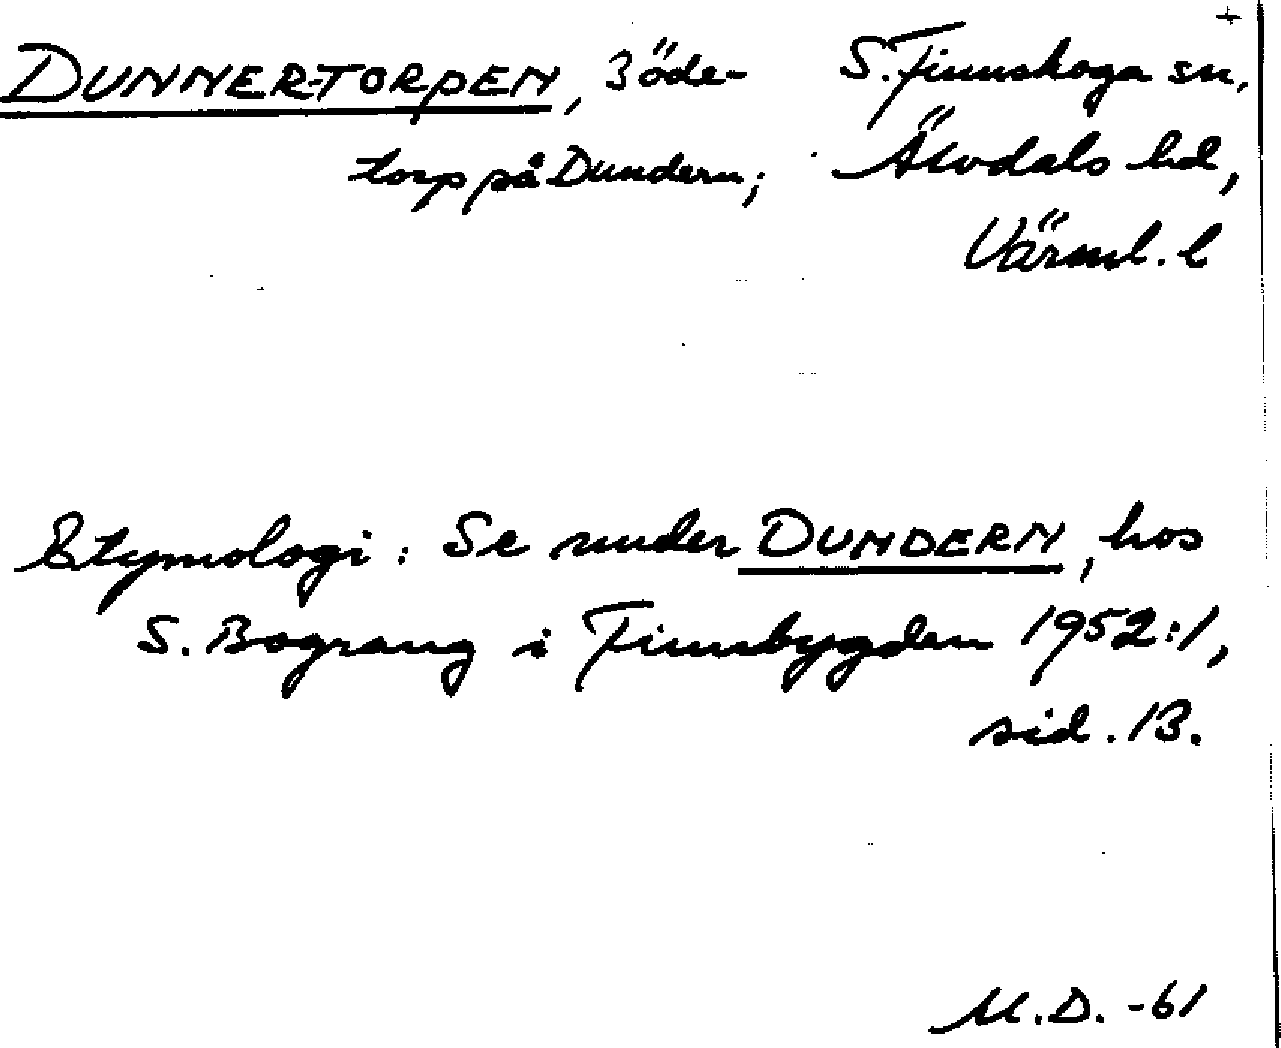 DUNNER-TORPEN, 3 öde- S. Finnskoga sn,
torp på Dundern; Älvdals hd,
Värml. l
Etymologi: Se under DUNDERN, hos
S. Bograng i Finnbygden 1952:1,
sid. 13.
M.D. -61